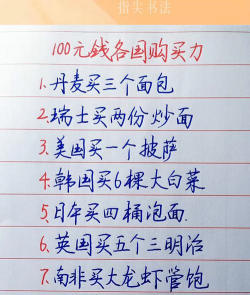 指尖书法
100元钱各国购买力
1.丹麦买三个面包
2.瑞士买两份炒面
3.美国买一个披萨
4.韩国买6棵大白菜
5.日本买四桶泡面.
6.英国买五个三明治
7.南非买大龙虾管饱